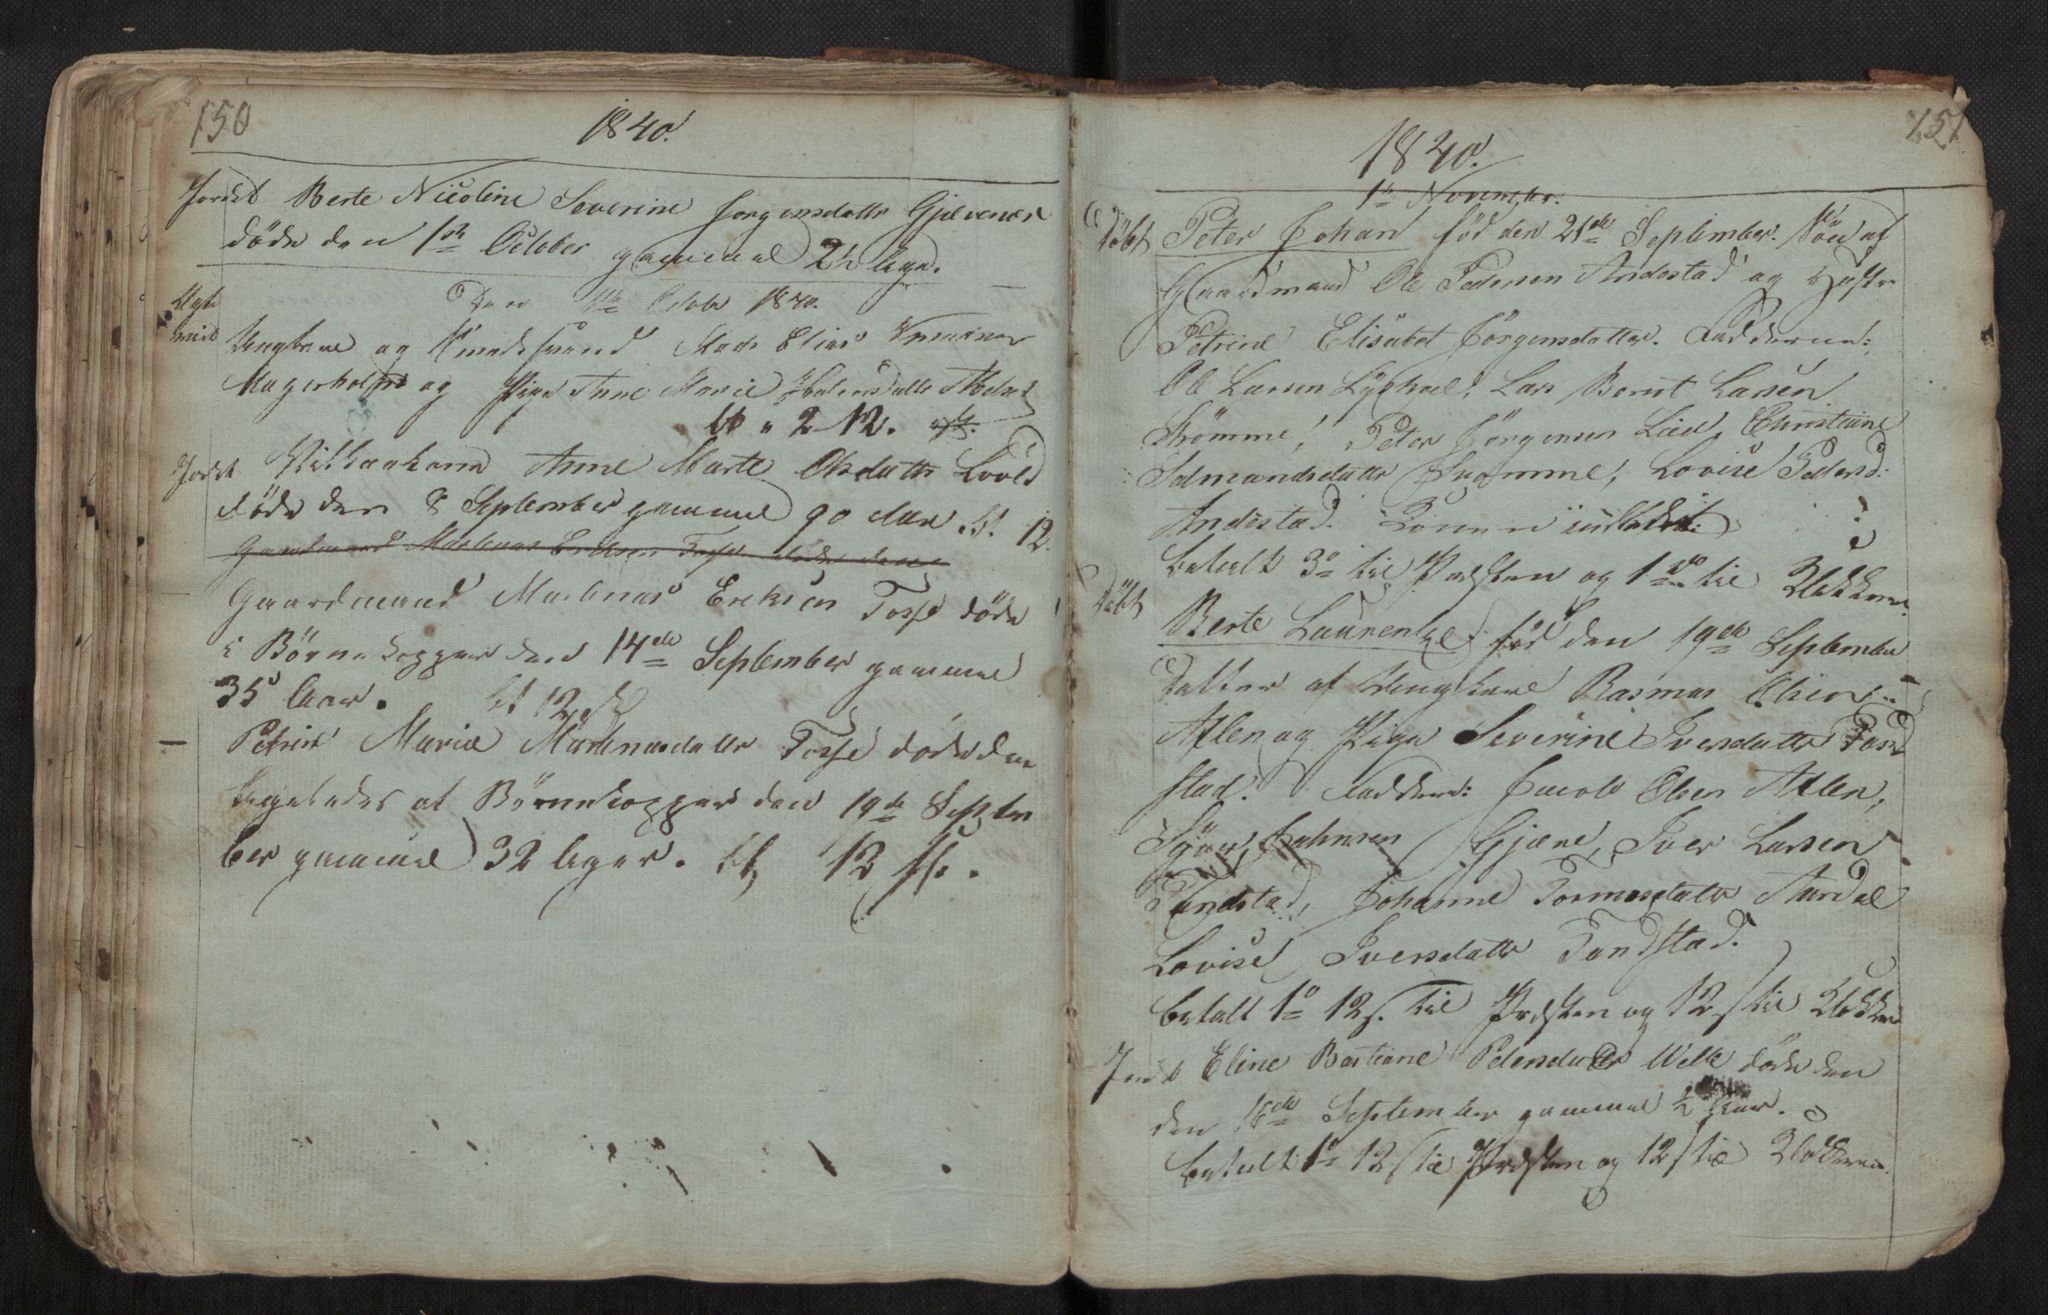 150
1840.
Jordet Berte Nicoline Severine Jørgensdatter Gjævenæs
døde den 1ste October gammel 2½ Uge.
Den October 1840.
Ungkarl og Mads Elias
Magerholm og Pige Anne Marie
bt " 2 12.
Jordet Anne Marte Olsdatter
døde den 8 September gammel 90 Aar bt. 12.
Gaardmand Martinus Eriksen Tosse døde den
Gaardmand Martinus Eriksen Tosse døde
i Børnekopper den 14de September gammel
35 Aar. bt 12 s
Petrine Marie Martinusdatter Tosse døde den
ligeledes af Børnekopper den 19de Septem
ber gammel 32 Uger. bt 12 s.
151
1840.
1ste November.
Døbt Peter Johan fød den 21de September. Søn af
Gaardmand Ole Pedersen Andestad og Hustru
Petrine Elisabet Jørgensdatter. Fadderne:
Ole Larsen Lars Bernt Larsen
Strømme, Peter Jørgensen Lied, Christiane
Salmundsdatter Strømme, Lovise Pedersd:
Andestad.
betalt 3 o til Præsten og 1 o til Klokkeren.
Døbt
Berte Laurentze fød den 19de September
Datter af Ungkarl Rasmus Olsen
Aflen og Pige Severine Iversdatter Tand
stad. Fadder: Jacob Olsen Aflen,
Johnsen Gjære, Iver Larsen
Tandstad, Johanne Tormodsdatter Aurdal
Lovise Iversdatter Tandstad.
betalt 1 o 12 s. til Præsten og 12 s til Klokkeren
Jordet Eline Bastiane Pedersdatter Welle døde den
den 16de September gammel ½ Aar.
betalt 1 o 12 s til Præsten og 12 s til Klokkeren.